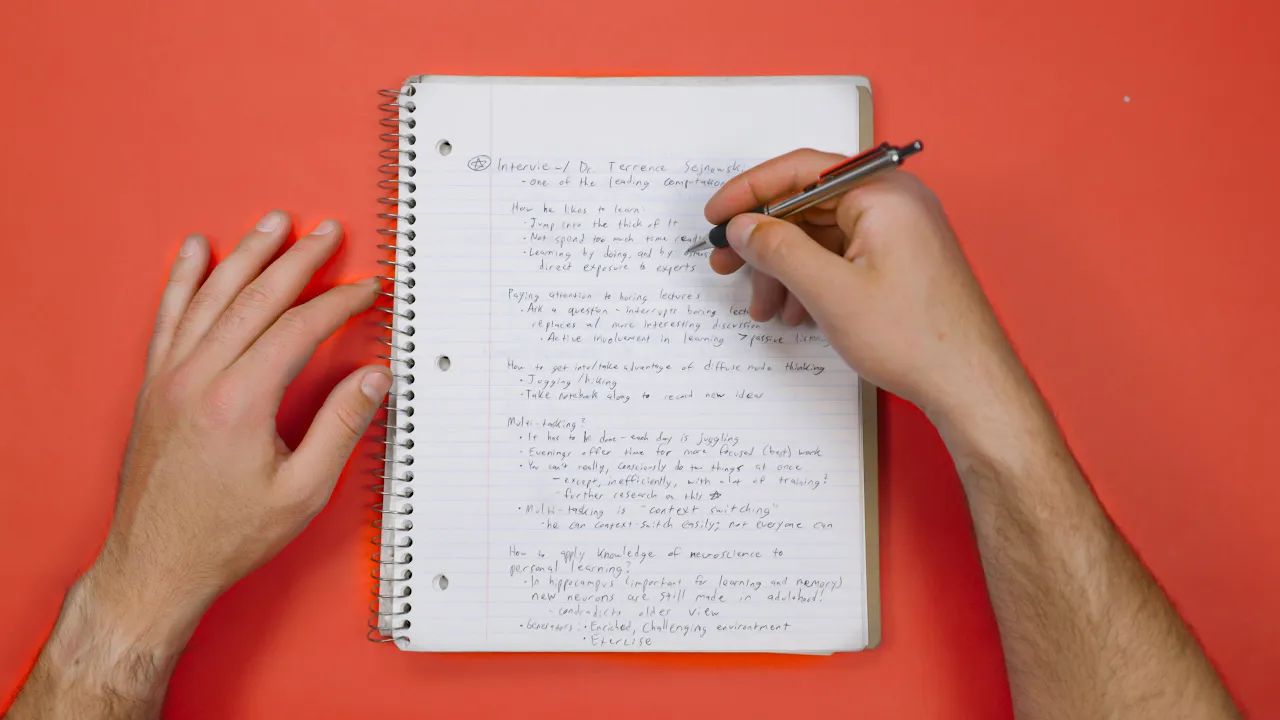 Interview w/ Dr. Terrence Sejnowski
- One of the leading computation
How he likes to learn:
- Jump into the thick of it
- Not spend too much time
- Learning by doing, and by
direct exposure to experts
Paying attention to boring lectures
• Ask a question - interrupts boring
replaces w/ more interesting discussion
• Active involvement in learning > passive
How to get into/take advantage of diffuse mode thinking
• Jogging/hiking
• Take notebook along to record new ideas
Multi-tasking?
• It has to be done - each day is juggling
• Evenings offer time for more focused (best) work
• You can't really, consciously do two things at once
- except, inefficiently, with a lot of training?
- further research on this ☆
• Multi-tasking is "context switching"
• he can context-switch easily; not everyone can
How to apply knowledge of neuroscience to
personal learning?
• In hippocampus (important for learning and memory)
new neurons are still made in adulthood!
- contradicts older view
• Generators: • Enriched, challenging environment
• Exercise